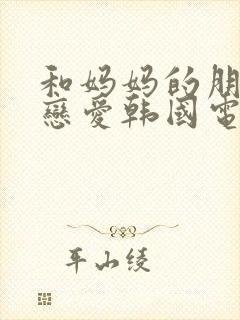 和妈妈的朋
戀愛韩國電
平山绫